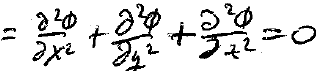 = ∂²φ/∂x² + ∂²φ/∂y² + ∂²φ/∂z² = 0